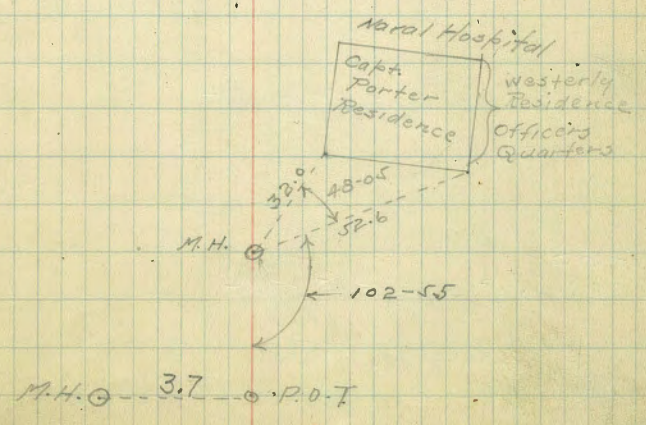 Naval Hospital
Capt.
Porter
Residence
Westerly
Residence
Officers
Quarters
32.0'
48-05
52.6
M.H.
102-55
M.H. 3.7 P.O.T.